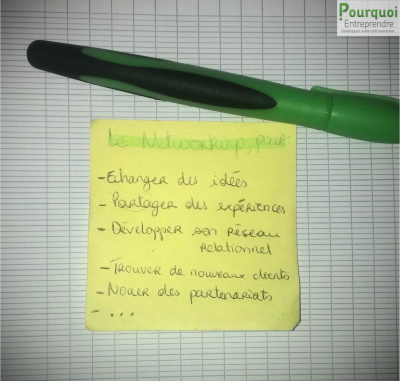 Pourquoi
Entreprendre
Le Networking, pour:
- Echanger des idées
- Partager des expériences
- Développer son réseau
relationnel
- Trouver de nouveaux clients
- Nouer des partenariats
- ...